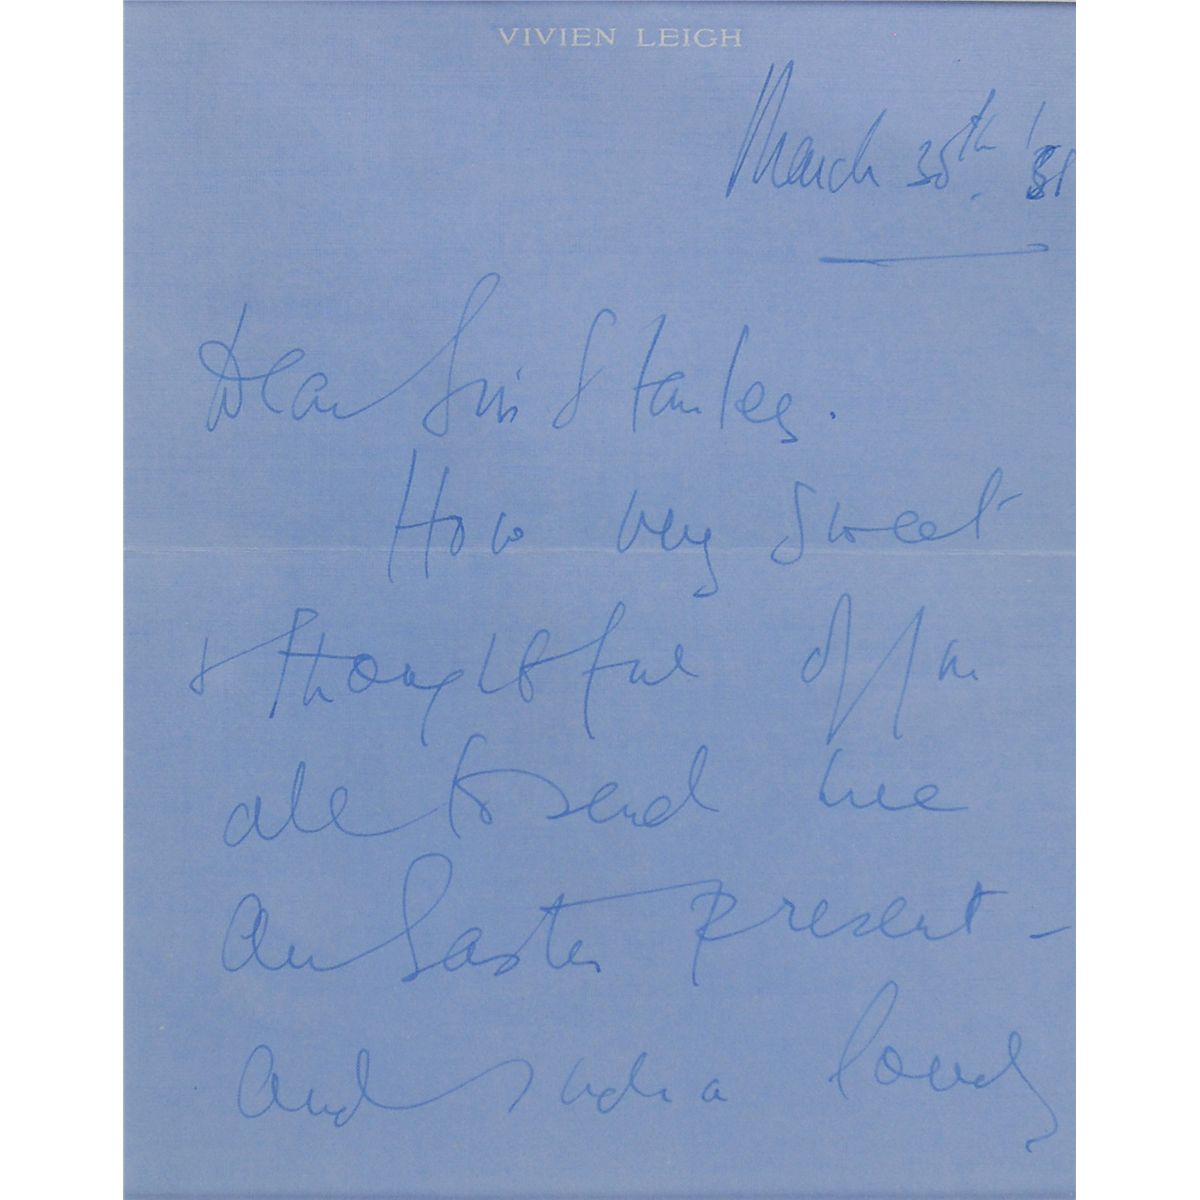 VIVIEN LEIGH
March 30th.
Dear Sir Stanley.
How very sweet
& thoughtful of you
all to send me
an Easter present -
and such a lovely